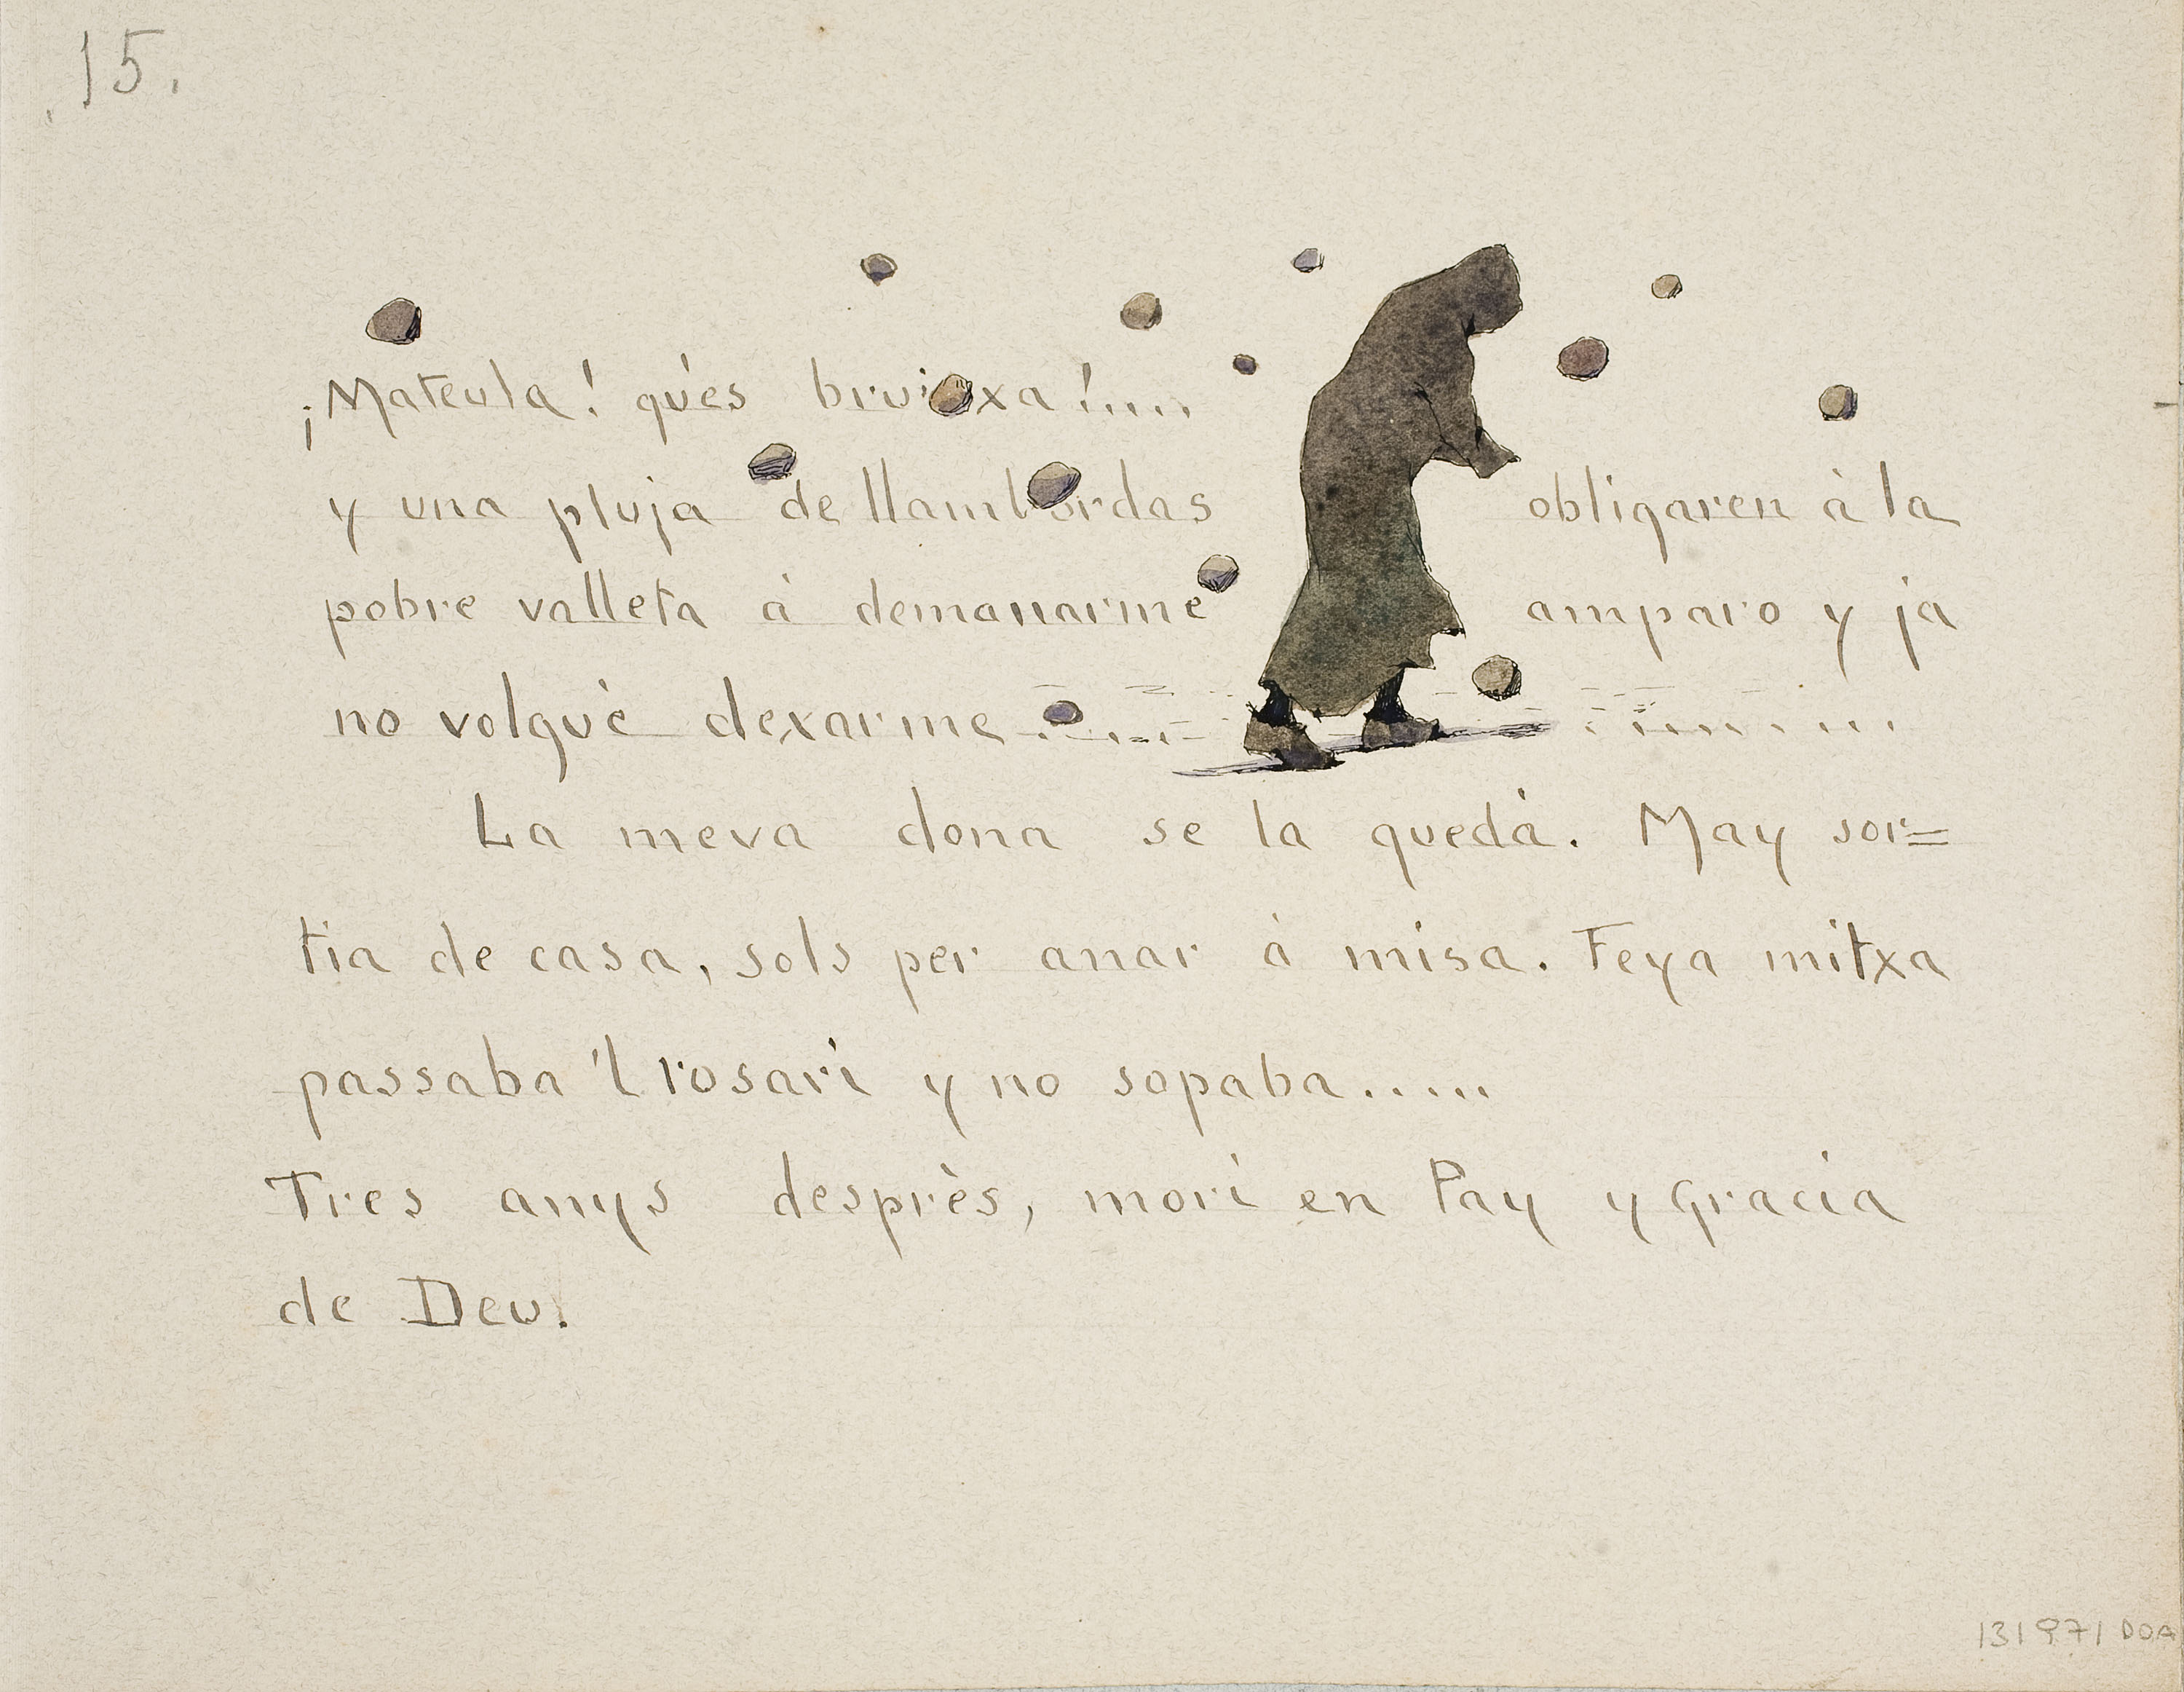 15.
¡Mateula! qu'es bruixa!....
y una pluja de llambordas obligaren à la
pobre valleta à demanarme amparo y ja
no volguè dexarme
La meva dona se la quedà. May sor=
tia de casa, sols per anar à misa. Feya mitxa
passaba 'l rosari y no sopaba.....
Tres anys desprès, morí en Pay y Gracia
de Deu.
131971 DOA